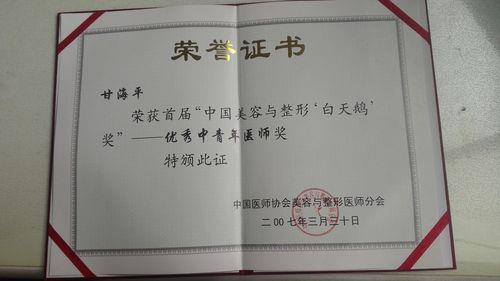 荣誉证书
甘海平
荣获首届“中国美容与整形‘白天鹅’
奖”——优秀中青年医师奖
特颁此证
中国医师协会美容与整形医师分会
二00七年三月三十日